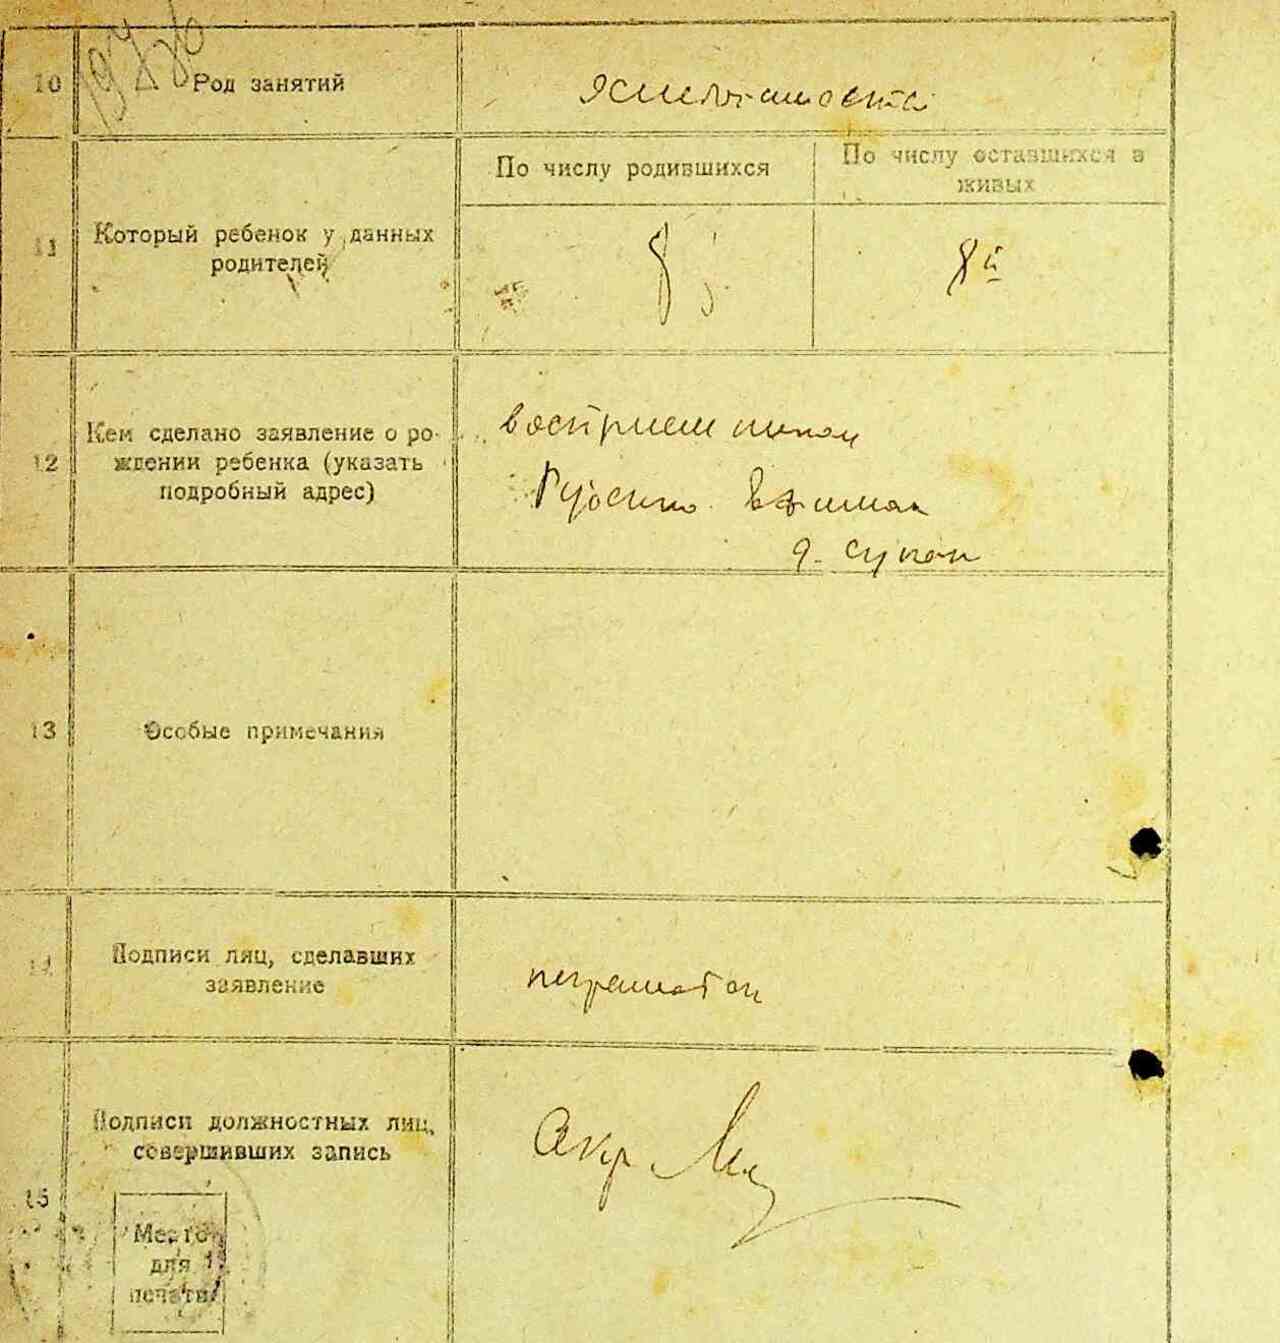 10
Род занятий
11
Который ребенок у данных
родителей
По числу родившихся
По числу оставшихся в
живых
8й
8й
12
Кем сделано заявление о ро-
ждении ребенка (указать
подробный адрес)
восприемником
д.
13
Особые примечания
14
Подписи лиц, сделавших
заявление
неграмотен
15
Подписи должностных лиц,
совершивших запись
Место
для
печати